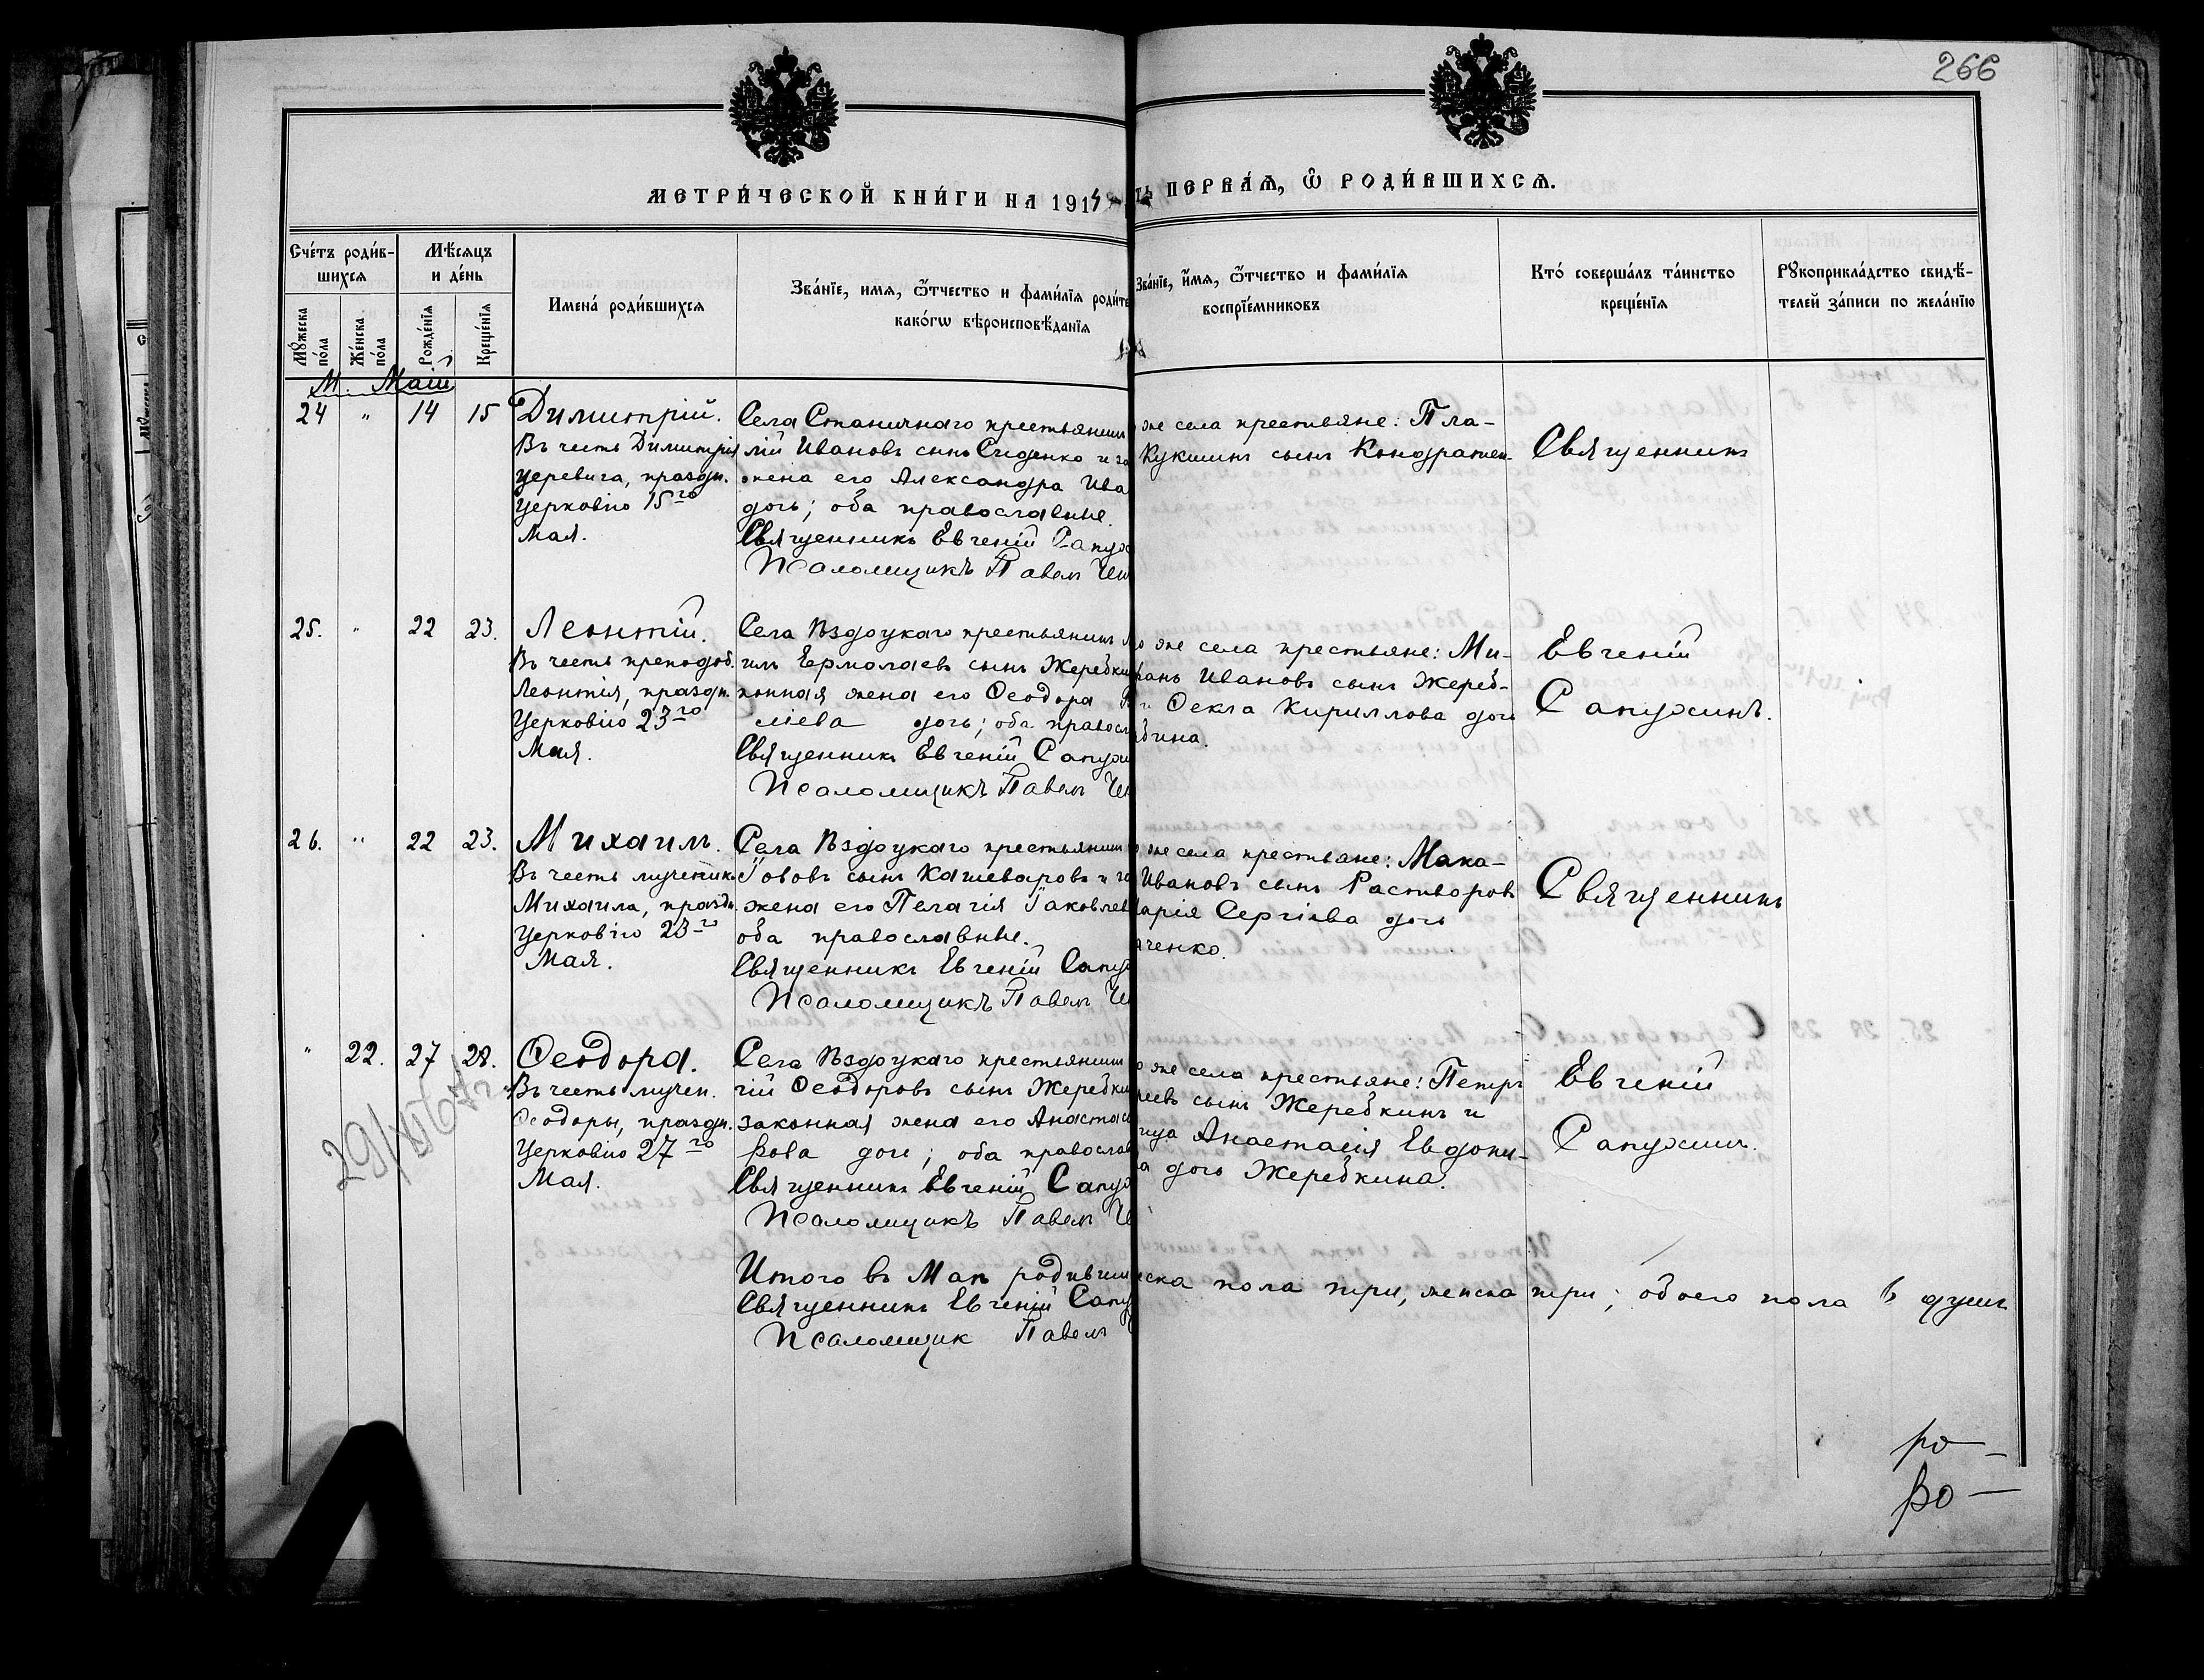 266
МЕТРИ́ЧЕСКОЙ КНИ́ГИ НА 1914
ПЕРВАѦ, Ѿ РОДИ́ВШИХСѦ.
Сче́тъ роди́в-
шихся
Мѣсяцъ
и де́нь
Имена́ роди́вшихся
Зва́нїе, имя, ѿтчество и фами́лїя роди́те
како́гѡ вѣроисповѣданїя
Зва́нїе, и́мя, ѿтчество и фами́лїя
воспрїе́мниковъ
Кто́ соверша́лъ та́инство
креще́нїя
Рꙋкоприкла́дство свидѣ-
телей за́писи по жела́нїю
Мꙋ́жеска
по́ла
Же́нска
по́ла
Рожде́нїя
Креще́нїя
М. Маій
24 " 14 15 Димитрій.
Въ честь Димитрія
царевича, праздн.
Церковію 15го
Мая.
Села Станичнаго крестьянин
лій Ивановъ сынъ Сиденко и за
жена его Александра Ива
дочь; оба православные.
Священникъ Евгеній Сапух
Псаломщикъ Павелъ
же села крестьяне: Пла-
Кукшинъ сынъ Кондратен-
Священникъ
25. " 22 23. Леонтій.
Въ честь преподоб.
Леонтія, праздн.
Церковію 23го
Мая.
Села Вздоцкаго крестьянинъ
илъ Ермолаевъ сынъ Жеребки
конная жена его Ѳеодора
сіева дочь; оба правосл
Священникъ Евгеній Сапухи
Псаломщикъ Павелъ
о же села крестьяне: Ми-
Ивановъ сынъ Жереб-
и Ѳекла Кириллова дочь
бина.
Евгеній
Сапухинъ.
26. " 22 23. Михаилъ.
Въ честь мученика
Михаила, праздн.
Церковію 23го
Мая.
Села Вздоцкаго крестьянин
Іововъ сынъ Кашеваровъ и за
жена его Пелагія Іаковлев
оба православные.
Священникъ Евгеній Сапух
Псаломщикъ Павелъ
же села крестьяне: Мака-
Ивановъ сынъ Растворовъ
арія Сергіева дочь
аченко.
Священникъ
" 22. 27 28. Ѳеодора.
Въ честь мучен.
Ѳеодоры, праздн.
Церковію 27го
Мая.
Села Вздоцкаго крестьянин
гій Ѳеодоровъ сынъ Жеребки
законная жена его Анастас
рова дочь; оба православ
Священникъ Евгеній Сапух
Псаломщикъ Павелъ
о же села крестьяне: Петръ
реевъ сынъ Жеребкинъ и
ица Анастасія Евдоки-
а дочь Жеребкина.
Евгеній
Сапухинъ.
Итого въ Маѣ родивши
еска пола три, женска три; обоего пола 6 душъ
Священникъ Евгеній Сапу
Псаломщик Павелъ